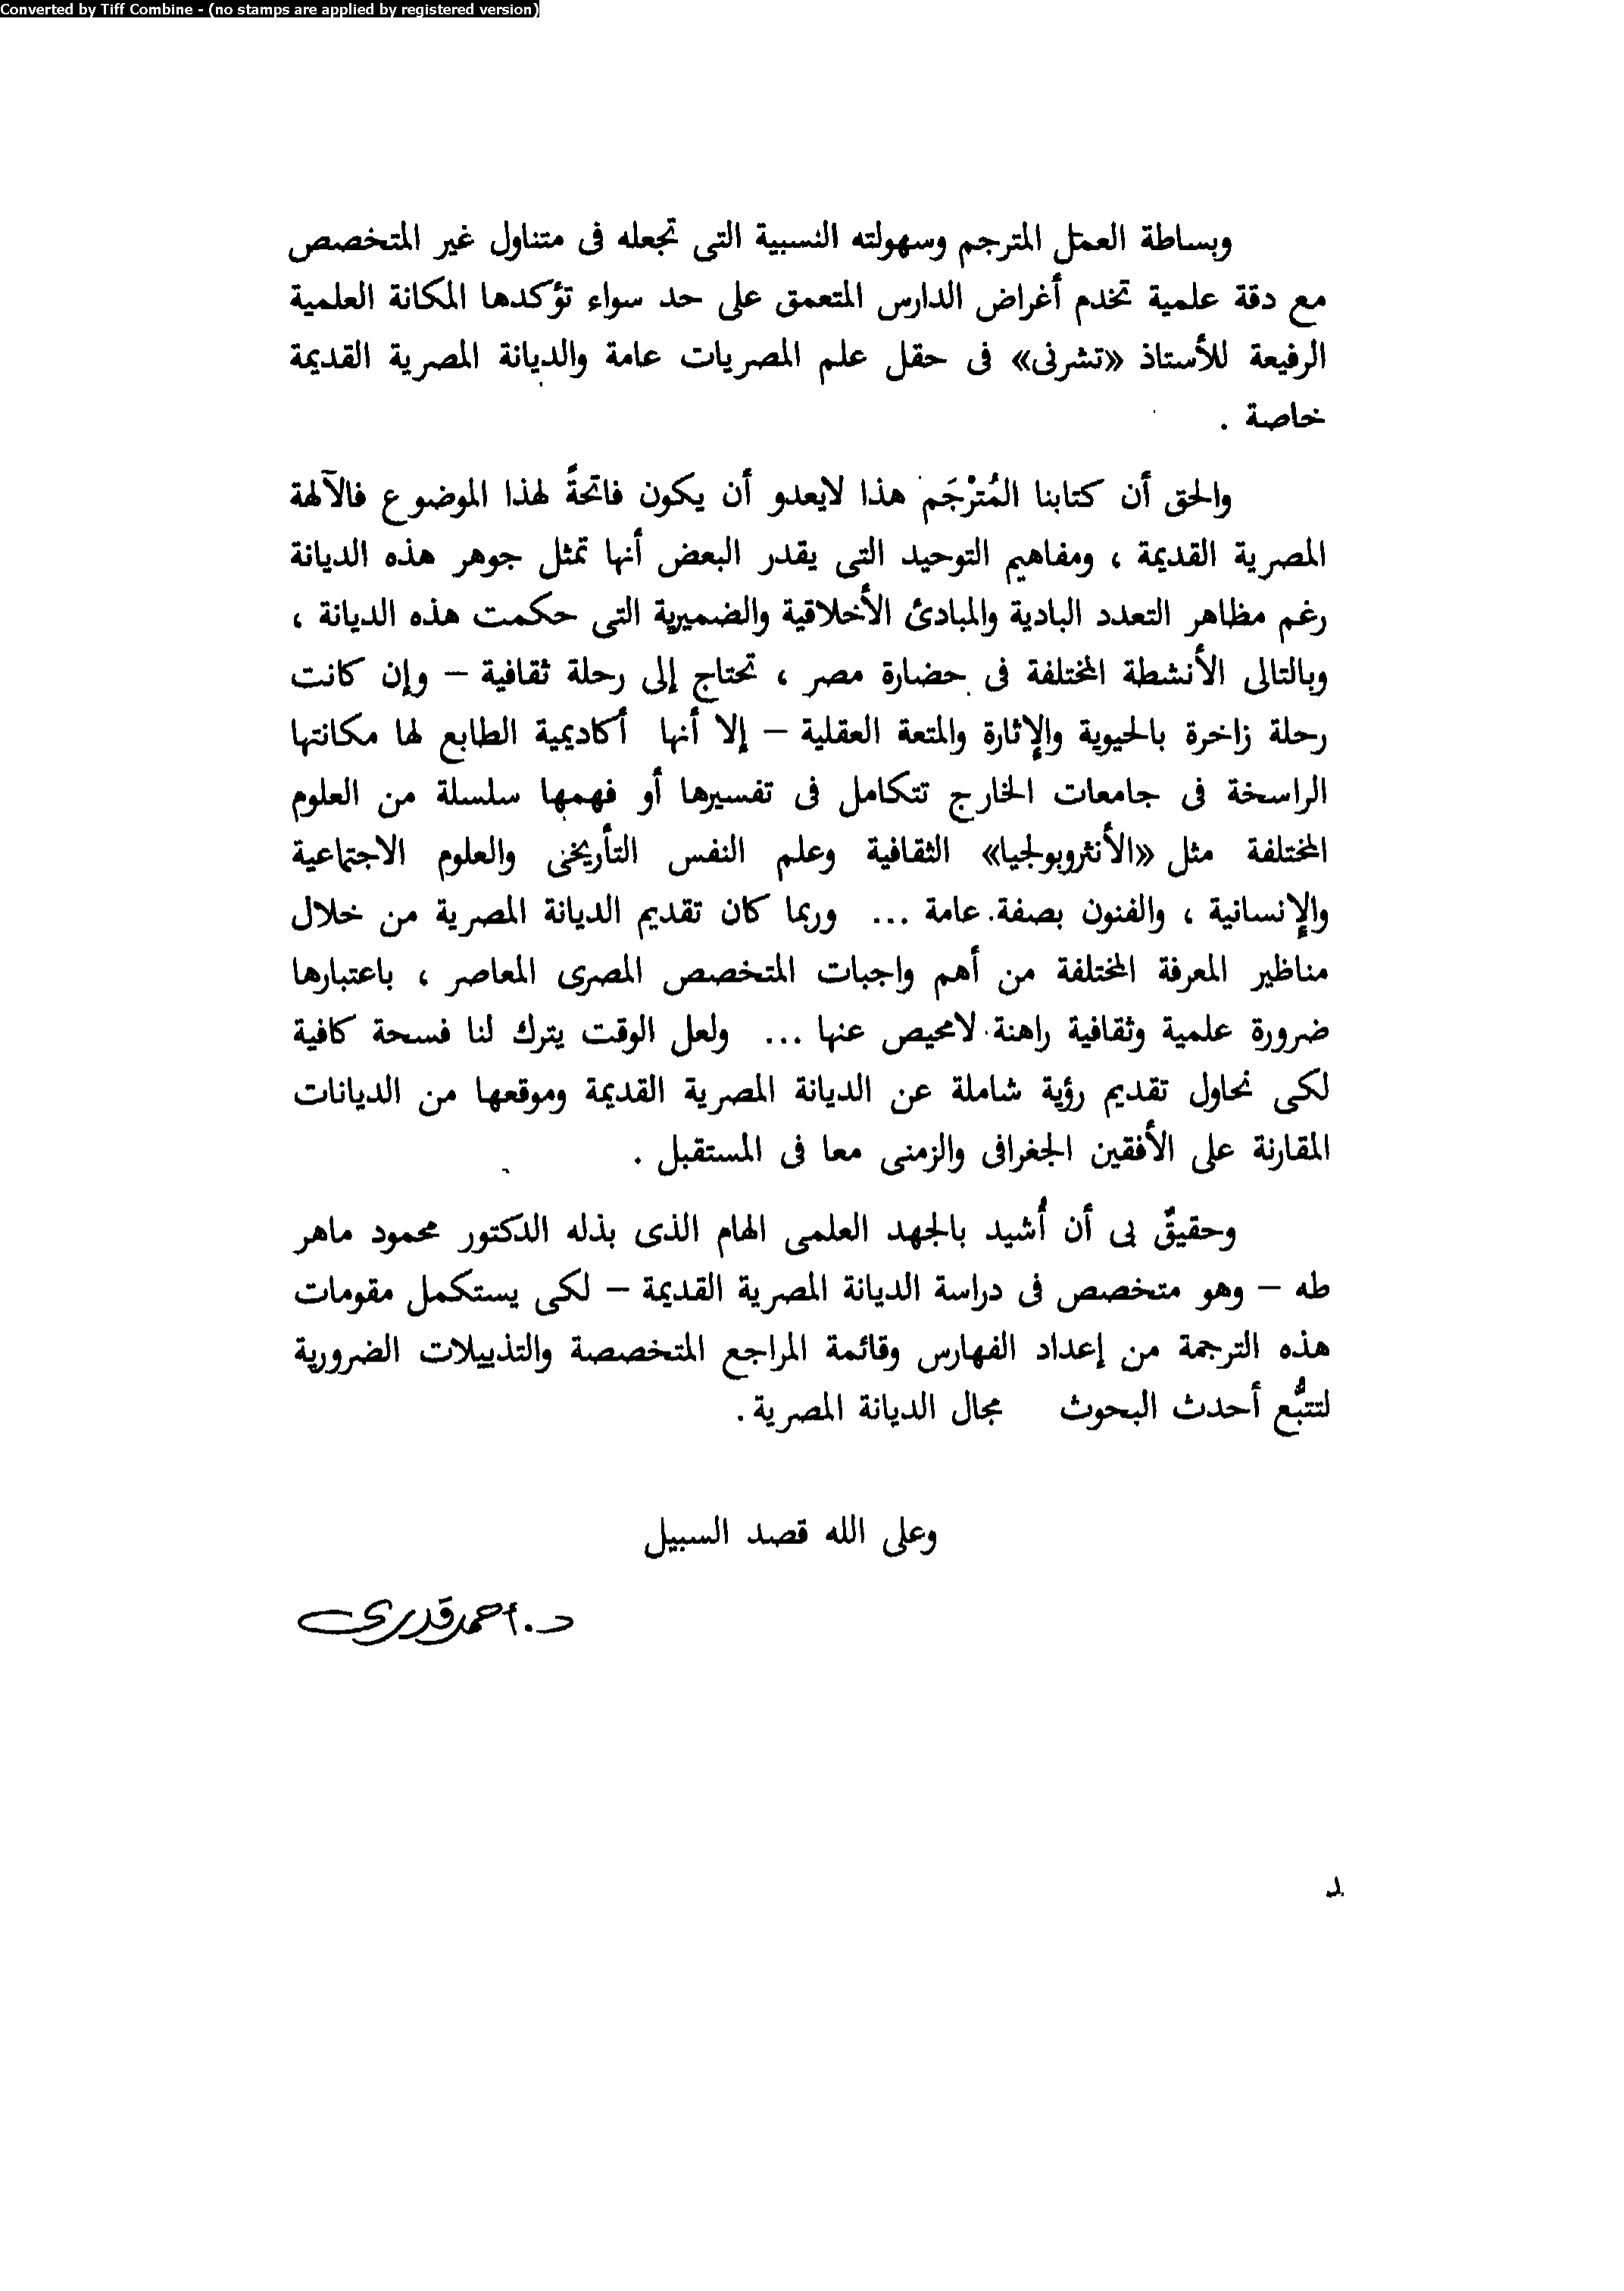 Converted by Tiff Combine - (no stamps are applied by registered version)
وبساطة العمل المترجم وسهولته النسبية التى تجعله فى متناول غير المتخصص
مع دقة علمية تخدم أغراض الدارس المتعمق على حد سواء تؤكدها المكانة العلمية
الرفيعة للأستاذ «تشرنى» فى حقل علم المصريات عامة والديانة المصرية القديمة
خاصة .
والحق أن كتابنا المُتْرْجَم هذا لايعدو أن يكون فاتحةً لهذا الموضوع فالآلهة
المصرية القديمة ، ومفاهيم التوحيد التى يقدر البعض أنها تمثل جوهر هذه الديانة
رغم مظاهر التعدد البادية والمبادئ الأخلاقية والضميرية التى حكمت هذه الديانة ،
وبالتالى الأنشطة المختلفة فى حضارة مصر ، تحتاج إلى رحلة ثقافية – وإن كانت
رحلة زاخرة بالحيوية والإثارة والمتعة العقلية – إلا أنها أكاديمية الطابع لها مكانتها
الراسخة فى جامعات الخارج تتكامل فى تفسيرها أو فهمها سلسلة من العلوم
المختلفة مثل «الأنثروبولجيا» الثقافية وعلم النفس التأريخى والعلوم الاجتماعية
والإنسانية ، والفنون بصفة عامة ... وربما كان تقديم الديانة المصرية من خلال
مناظير المعرفة المختلفة من أهم واجبات المتخصص المصرى المعاصر ، باعتبارها
ضرورة علمية وثقافية راهنة لامحيص عنها ... ولعل الوقت يترك لنا فسحة كافية
لكى نحاول تقديم رؤية شاملة عن الديانة المصرية القديمة وموقعها من الديانات
المقارنة على الأفقين الجغرافى والزمنى معا فى المستقبل .
وحقيقٌ بى أن أُشيد بالجهد العلمى الهام الذى بذله الدكتور محمود ماهر
طه – وهو متخصص فى دراسة الديانة المصرية القديمة – لكى يستكمل مقومات
هذه الترجمة من إعداد الفهارس وقائمة المراجع المتخصصة والتذييلات الضرورية
لتتبُّع أحدث البحوث مجال الديانة المصرية .
وعلى الله قصد السبيل
د. أحمد قدرى
د